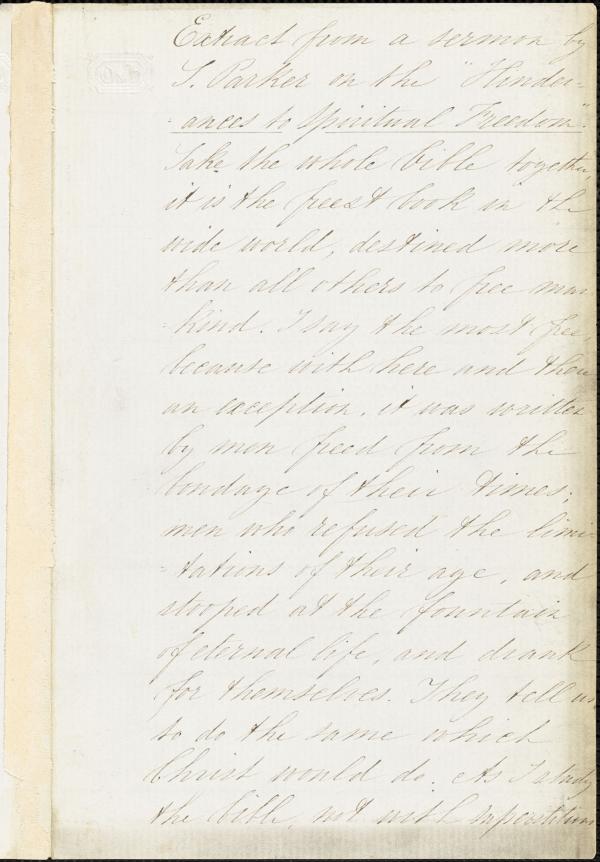 Extract from a sermon by
T. Parker on the "Hinder-
-ances to Spiritual Freedom".
Take the whole bible together,
it is the freest book in the
wide world, destined more
than all others to free man
-kind. I say the most free,
because with here and there
an exception, it was written
by men freed from the
bondage of their times;
men who refused the limi-
-tations of their age, and
stooped at the fountain
of eternal life, and drank
for themselves. They tell us
to do the same which
Christ would do. As I study
the bible, not with superstition